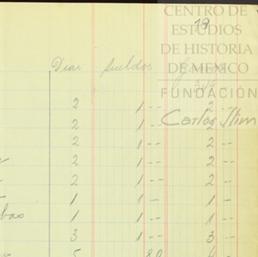 CENTRO DE
19
ESTUDIOS
DE HISTORIA
Dias Sueldos
DE MEXICO
FUNDACIÓN
2 1 -- 2
Carlos Slim
2 1 -- 2 --
2 1 -- 2 --
2 1 -- 2 --
2 1 -- 2 --
1 1 -- 1 --
1 1 -- 1 --
3 1 -- 3 --
5 80 4 --